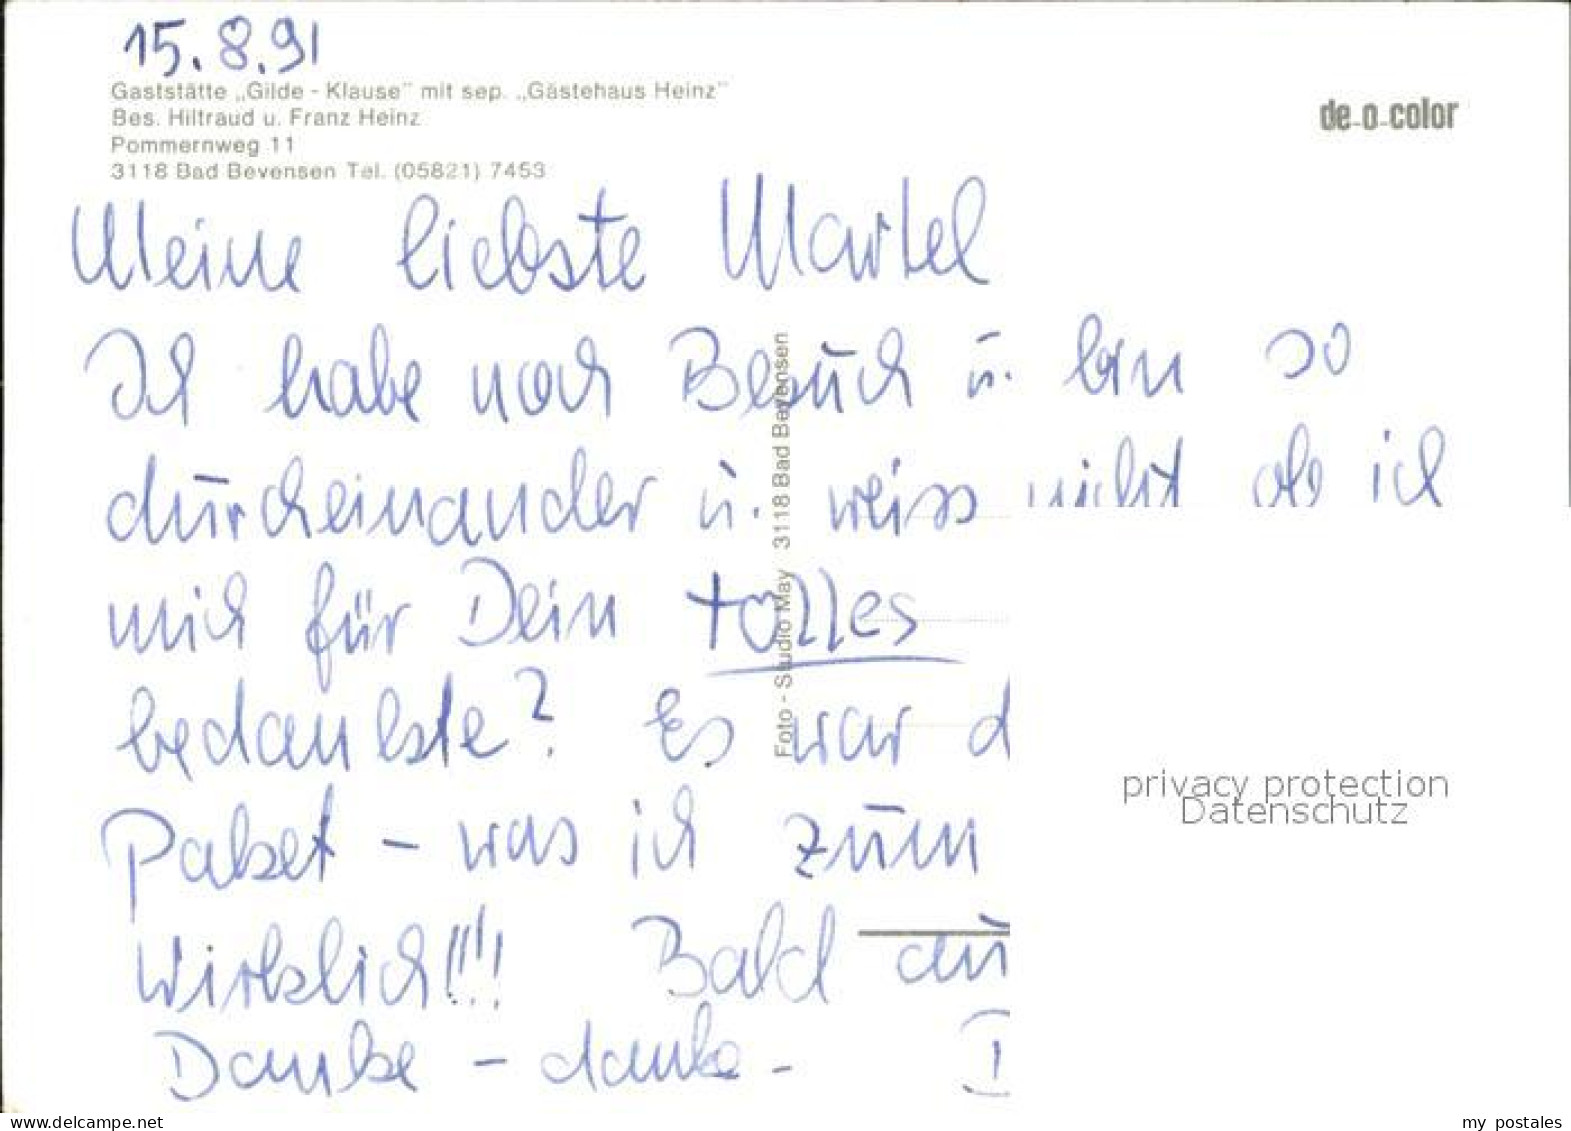 15.8.91
Gaststätte „Gilde - Klause" mit sep. „Gästehaus Heinz"
Bes. Hiltraud u. Franz Heinz
Pommernweg 11
3118 Bad Bevensen Tel. (05821) 7453
de-o-color
Meine liebste Martel
Ich habe noch Besuch u. bin so
durcheinander u. weiss nicht ob ich
mich für Dein tolles
bedankte? Es war d
Paket – was ich zum
Wirklich!!!! Bald au
Danke – danke –
Foto - Studio May 3118 Bad Bevensen
privacy protection
Datenschutz
www.delcampe.net
my_postales